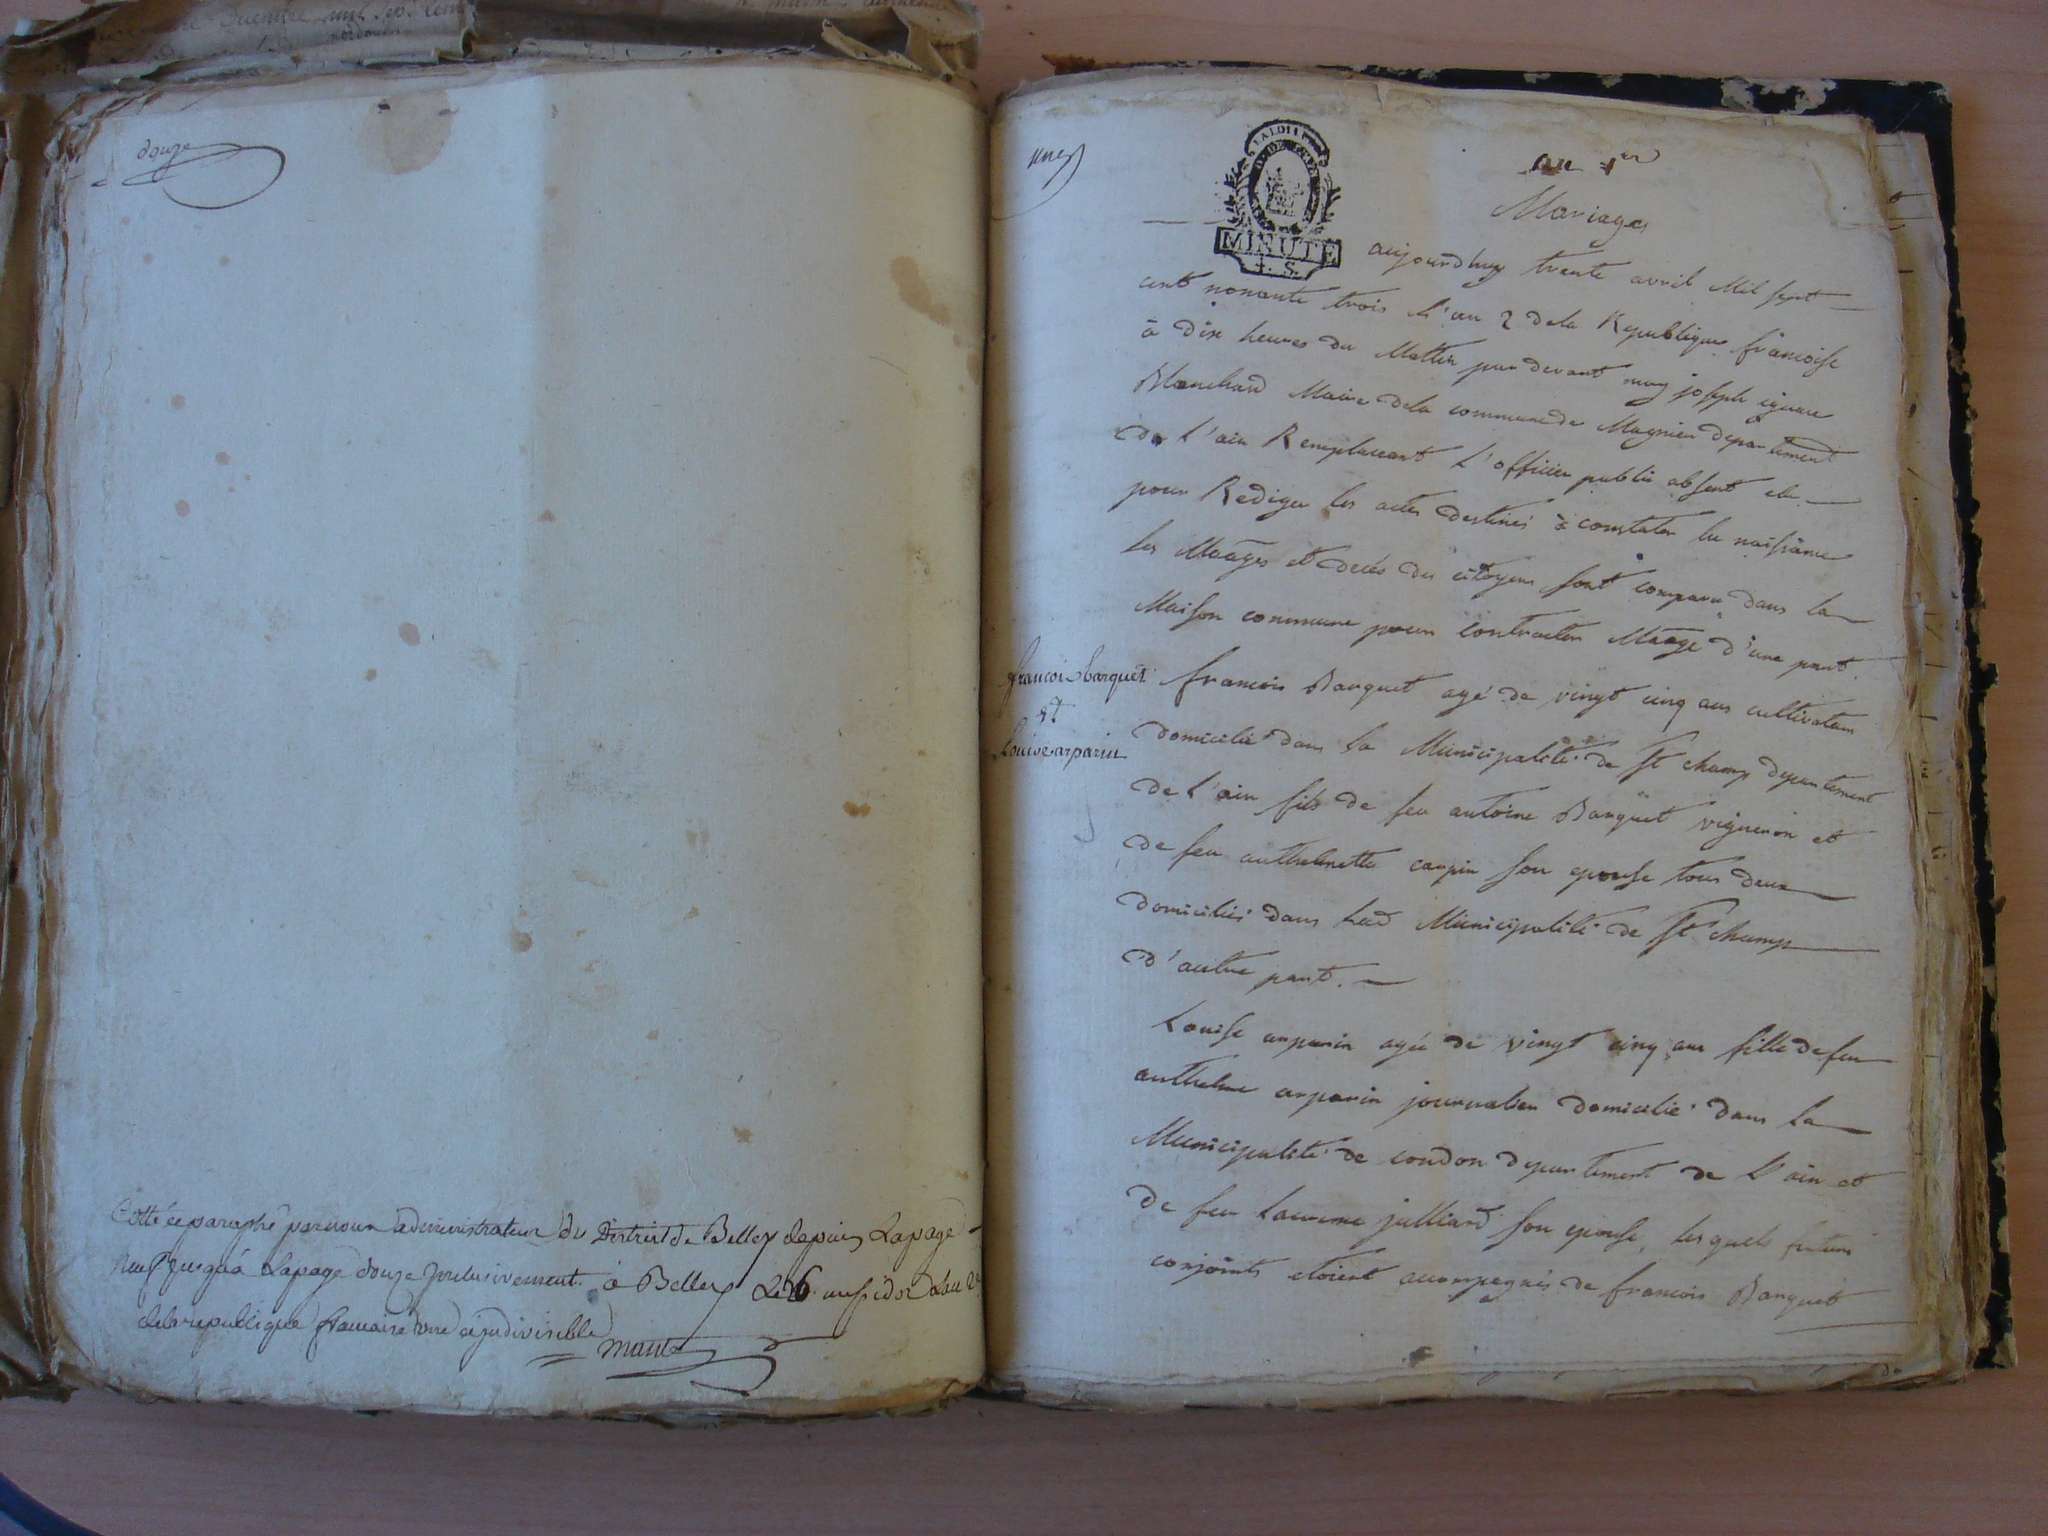 douze
Cotté et paraphé par nous administrateur du District de Belley depuis La page
neuf jusqu'à La page douze Inclusivement à Belley Le 26 messidor L'an 2e
de la republique francaise une et indivisible
une
MINUTE
4. S.
an 1er
Mariages
aujourdhuy trente avril Mil sept
cent nonante trois L'an 2 de la Republique francoise
à dix heures du Mattin par devant moy joseph ignace
Blanchard Maire de la commune de Magnieu departement
de L'ain Remplacant L'officier public absent elu
pour Rediger les actes destinés à constater la naissance
les Maāges et decés des citoyens sont comparu dans la
Maison commune pour contracter Maāge d'une part
francois barquet
et
Louise arparin
francois Barquet agé de vingt cinq ans cultivateur
domicilié dans la Municipalité de St champ departement
de L'ain fils de feu antoine Barquet vigneron et
de feu anthelmette carpin son epouse tous deux
domiciliés dans Lad Municipalité de St champ
d'autre part.
Louise arparin agée de vingt cinq ans fille de feu
anthelme arparin journalier domicilié dans La
Municipalité de condon departement de L'ain et
de feu Laurence julliard son epouse, Lesquels futurs
conjoints etoient accompagnés de francois Barquet